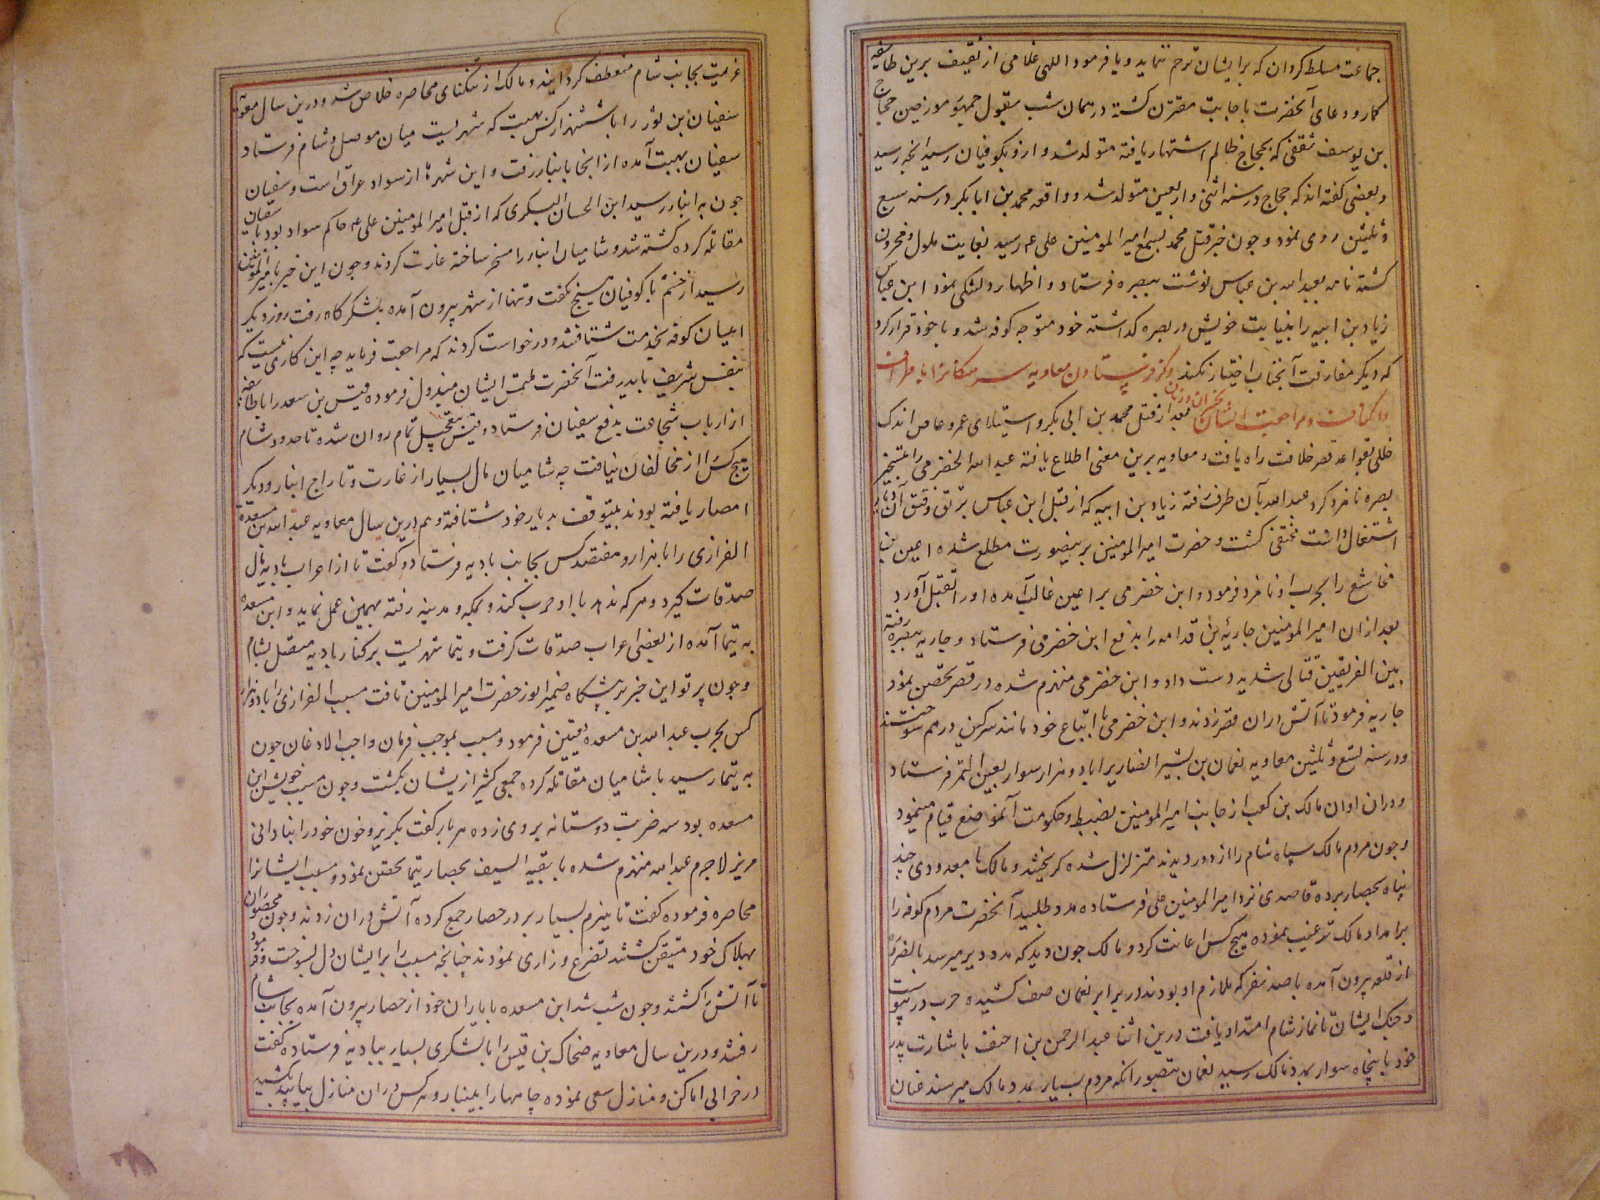 جماعت مسلط کردان که برایشان ترحم ننماید و یا فرمود اللهی غلامی از ثقیف برین طایفه
کمار و دعای آنحضرت باجابت مقترن کشته در همان شب بقول جمهور مورخین حجاج
بن یوسف ثقفی که بحجاج ظالم اشتهار یافته متولد شد و ازو بکوفیان رسید انچه رسید
و بعضی کفته اند که حجاج در سنه اثنی و اربعین متولد شد و واقعه محمد بن ابا بکر در سنه سبع
و ثلثین روی نمود و چون خبر قتل محمد بسمع امیر المومنین علی عم رسید بغایت ملول و محزون
کشته نامه بعبد الله بن عباس نوشت ببصره فرستاد و اظهار دلتنکی نمود ابن عباس
زیاد بن ابیه را بنیابت خویش در بصره کذاشته خود متوجه کوفه شد و با خود قرار کرد
که دیکر مفارقت آنجناب اختیار نکند ذکر فرستادن معاویه سرهنکانرا باطراف
و اکناف و مراجعت ایشان بعد از قتل محمد بن ابی بکر و استیلای عمرو عاص اندک
خللی بقواعد قصر خلافت راه یافت و معاویه برین معنی اطلاع یافته عبد الله الحضرمی را بتسخیر
بصره نامزد کرد عبد الله بآن طرف رفته زیاد بن ابیه که از قبل ابن عباس برتق و فتق آن دیار
اشتغال داشت مختفی کشت و حضرت امیر المومنین برینصورت مطلع شده اعین بن
مخاشع را بحرب او نامزد فرمود و ابن خضرمی بر اعین غالب آمده او را بقتل آورد
بعد ازان امیر المومنین جاریه بن قدامه را بدفع ابن خضرمی فرستاد و جاریه ببصره رفته
بین الفریقین قتالی شدید دست داد و ابن خضرمی منهزم شده در قصر تحصن نمود
جاریه فرمود تا آتش دران قصر زدند و ابن خضرمی با اتباع خود مانند سرکین درهم سوختند
و در سنه تسع و ثلثین معاویه نعمان بن بشیر انصاریرا با دو هزار سوار بعین التمر فرستاد
و دران اوان مالک بن کعب از جانب امیر المومنین بضبط و حکومت آنموضع قیام مینمود
و چون مردم مالک سپاه شام را از دور دیدند متزلزل شده کریختند و مالک با معدودی چند
پناه بحصار برده قاصدی نزد امیر المومنین علی فرستاده مدد طلبید آنحضرت مردم کوفه را
بر امداد مالک ترغیب نموده هیچ کس اعانت نکرد و مالک چون دید که مدد دیر میرسد بالضروره
از قلعه بیرون آمده با صد نفر که ملازم او بودند در برابر نعمان صف کشیده حرب در پیوست
و جنک ایشان تا نماز شام امتداد یافت درین اثنا عبد الرحمن بن احنف باشارت پدر
خود با پنجاه سوار بمدد مالک رسید نعمان بتصور انکه مردم بسیار بمدد مالک میرسند عنان
عزیمت بجانب شام منعطف کردانیدند و مالک از تنکنای محاصره خلاص شد و درین سال معویه
سفیان بن ثور را با شش هزار کس بهیت که شهریست میان موصل و شام فرستاد
سفیان بهیت آمده از انجا بانبار رفت و این شهرها از سواد عراق است و سفیان
چون به انبار رسید ابن الحسان البکری که از قبل امیر المومنین علی عم حاکم سواد بود با سفیان
مقاتله کرده کشته شد و شامیان انبار را مسخر ساخته غارت کردند و چون این خبر بامیر المومنین
رسید از خشم با کوفیان هیچ نکفت و تنها از شهر بیرون آمده بلشکرکاه رفت روز دیکر
اعیان کوفه بخدمت شتافتند و درخواست کردند که مراجعت فرماید چه این کاری نیست که
بنفس شریف باید رفت آنحضرت ملتمس ایشان مبذول فرموده قیس بن سعد را با طایفه
از ارباب شجاعت بدفع سفیان فرستاد و قیس بتعجیل تمام روان شده تا حدود شام
هیچ کس را از مخالفان نیافت چه شامیان مال بسیار از غارت و تاراج انبار و دیکر
امصار یافته بودند بیتوقف بدیار خود شتافته و هم درین سال معاویه عبد الله بن مسعده
الفزاری را با هزار و هفتصد کس بجانب بادیه فرستاد و کفت تا از اعراب بادیه مال
صدقات کیرد و هر که ندهد با او حرب کند و بمکه و مدینه رفته بهمین عمل نماید و ابن مسعده
به تیما آمده از بعضی اعراب صدقات کرفت و تیما شهریست بر کنار بادیه متصل بشام
و چون پرتو این خبر بر پیشکاه ضمیر انور حضرت امیر المومنین تافت مسبب الفزاری را با دو هزار
کس بحرب عبد الله بن مسعده تعیین فرمود و مسبب بموجب فرمان واجب الاذعان چون
به تیما رسید با شامیان مقاتله کرده جمعی کثیر از یشان بکشت و چون مسبب خویش ابن
مسعده بود سه ضربت دوستانه بر وی زده هر بار کفت بکریز و خون خود را بنادانی
مریز لاجرم عبد الله منهزم شده با بقیه السیف بحصار تیما تحصن نمود و مسبب ایشانرا
محاصره فرموده کفت تا هیزم بسیار بر در حصار جمع کرده آتش دران زدند و چون محصوران
بهلاک خود متیقن کشتند تضرع و زاری نمودند چنانچه مسبب را بر ایشان دل بسوخت و فرمود
تا آتش را کشتند و چون شب شد ابن مسعده با یاران خود از حصار بیرون آمده بجانب شام
رفتند و درین سال معاویه ضحاک بن قیس را با لشکری بسیار ببادیه فرستاده کفت
در خرابی اماکن و منازل سعی نموده چاهها را بینبار و هر کس دران منازل بیابید بکشید